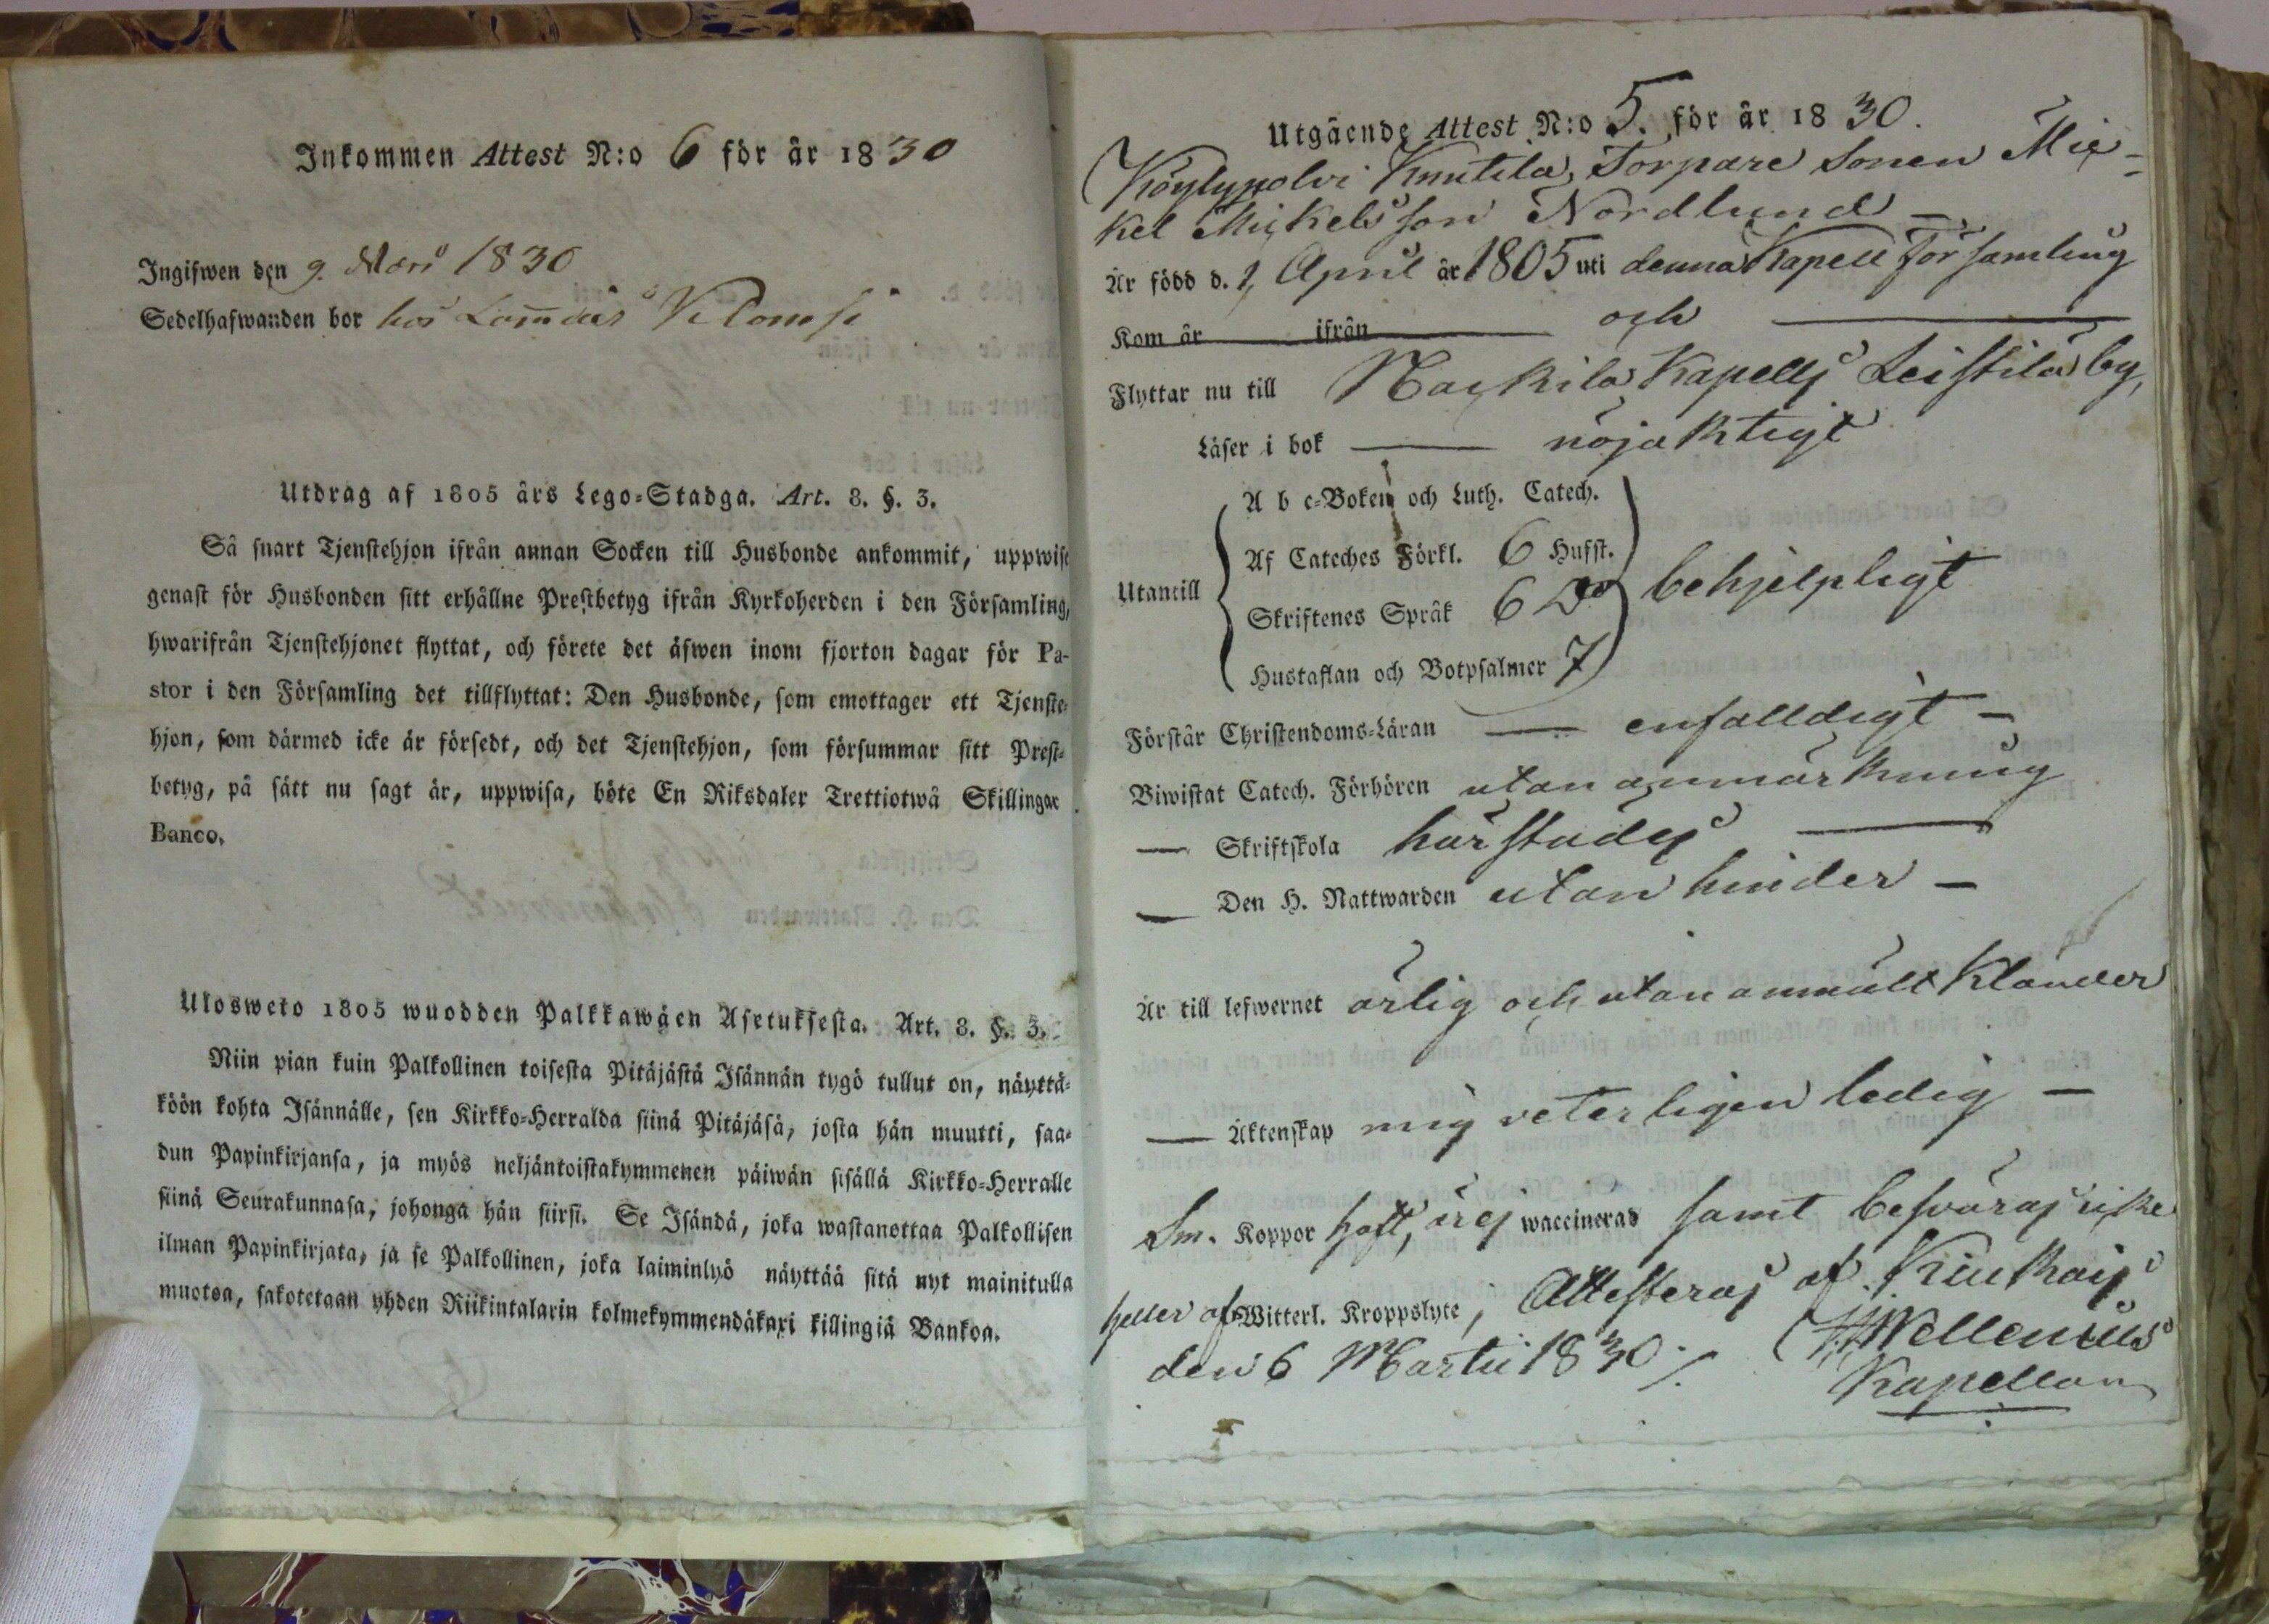 Inkommen Attest N:o 6 för år 1830
Ingifwen den 9 Mars 1830
Sedelhafwanden bor hos
Utdrag af 1805 års Lego-Stadga. Art. 8. §. 3.
Så snart Tjenstehjon ifrån annan Socken till Husbonde ankommit, uppwise
genast för Husbonden sitt erhållne Prestbetyg ifrån Kyrkoherden i den Församling,
hwarifrån Tjenstehjonet flyttat, och förete det äfwen inom fjorton dagar för Pa-
stor i den Församling det tillflyttat: Den Husbonde, som emottager ett Tjenste-
hjon, som därmed icke är försedt, och det Tjenstehjon, som försummar sitt Prest-
betyg, på sätt nu sagt är, uppwisa, böte En Riksdaler Trettiotwå Skillingar
Banco.
Ulosweto 1805 wuodden Palkkawäen Asetuksesta. Art. 8. §. 3.
Niin pian kuin Palkollinen toisesta Pitäjästä Isännän tygö tullut on, näyttä-
köön kohta Isännälle, sen Kirkko-Herralda siinä Pitäjäsä, josta hän muutti, saa-
dun Papinkirjansa, ja myös neljäntoistakymmenen päiwän sisällä Kirkko-Herralle
siinä Seurakunnasa, johonga hän siirsi. Se Isändä, joka wastanottaa Palkollisen
ilman Papinkirjata, ja se Palkollinen, joka laiminlyö näyttää sitä nyt mainitulla
muotoa, sakotetaan yhden Riikintalarin kolmekymmendäkaxi killingiä Bankoa.
Utgående Attest N:o 5. för år 1830.
Köylypolvi Knutila, Torpare Sonen Mic-
kel Mickelsson Nordlund
Är född d. 1 April år 1805 uti denna Kapell Församling
Kom år ifrån och
Flyttar nu till Nackila Kapells Leistila by,
Läser i bok nöjaktigt
A b c-Boken och Luth. Catech.
Af Cateches Förkl. 6 Hufst.
Utantill Skriftenes Språk 6 Do behjelpligt
Hustaflan och Botpsalmer 7
Förstår Christendoms-Läran enfalldigt
Biwistat Catech. Förhören utan anmärkning
Skriftskola härstädes
Den H. Nattwarden utan hinder
Är till lefwernet ärlig och utan anmält klander
Äktenskap mig veterligen ledig
Sm. Koppor haft, är ej waccinerad samt besväras icke
heller af Witterl. Kroppslyte, Attesteras af Kiukais
den 6 Martii 1830. Wellenius
Kapellan